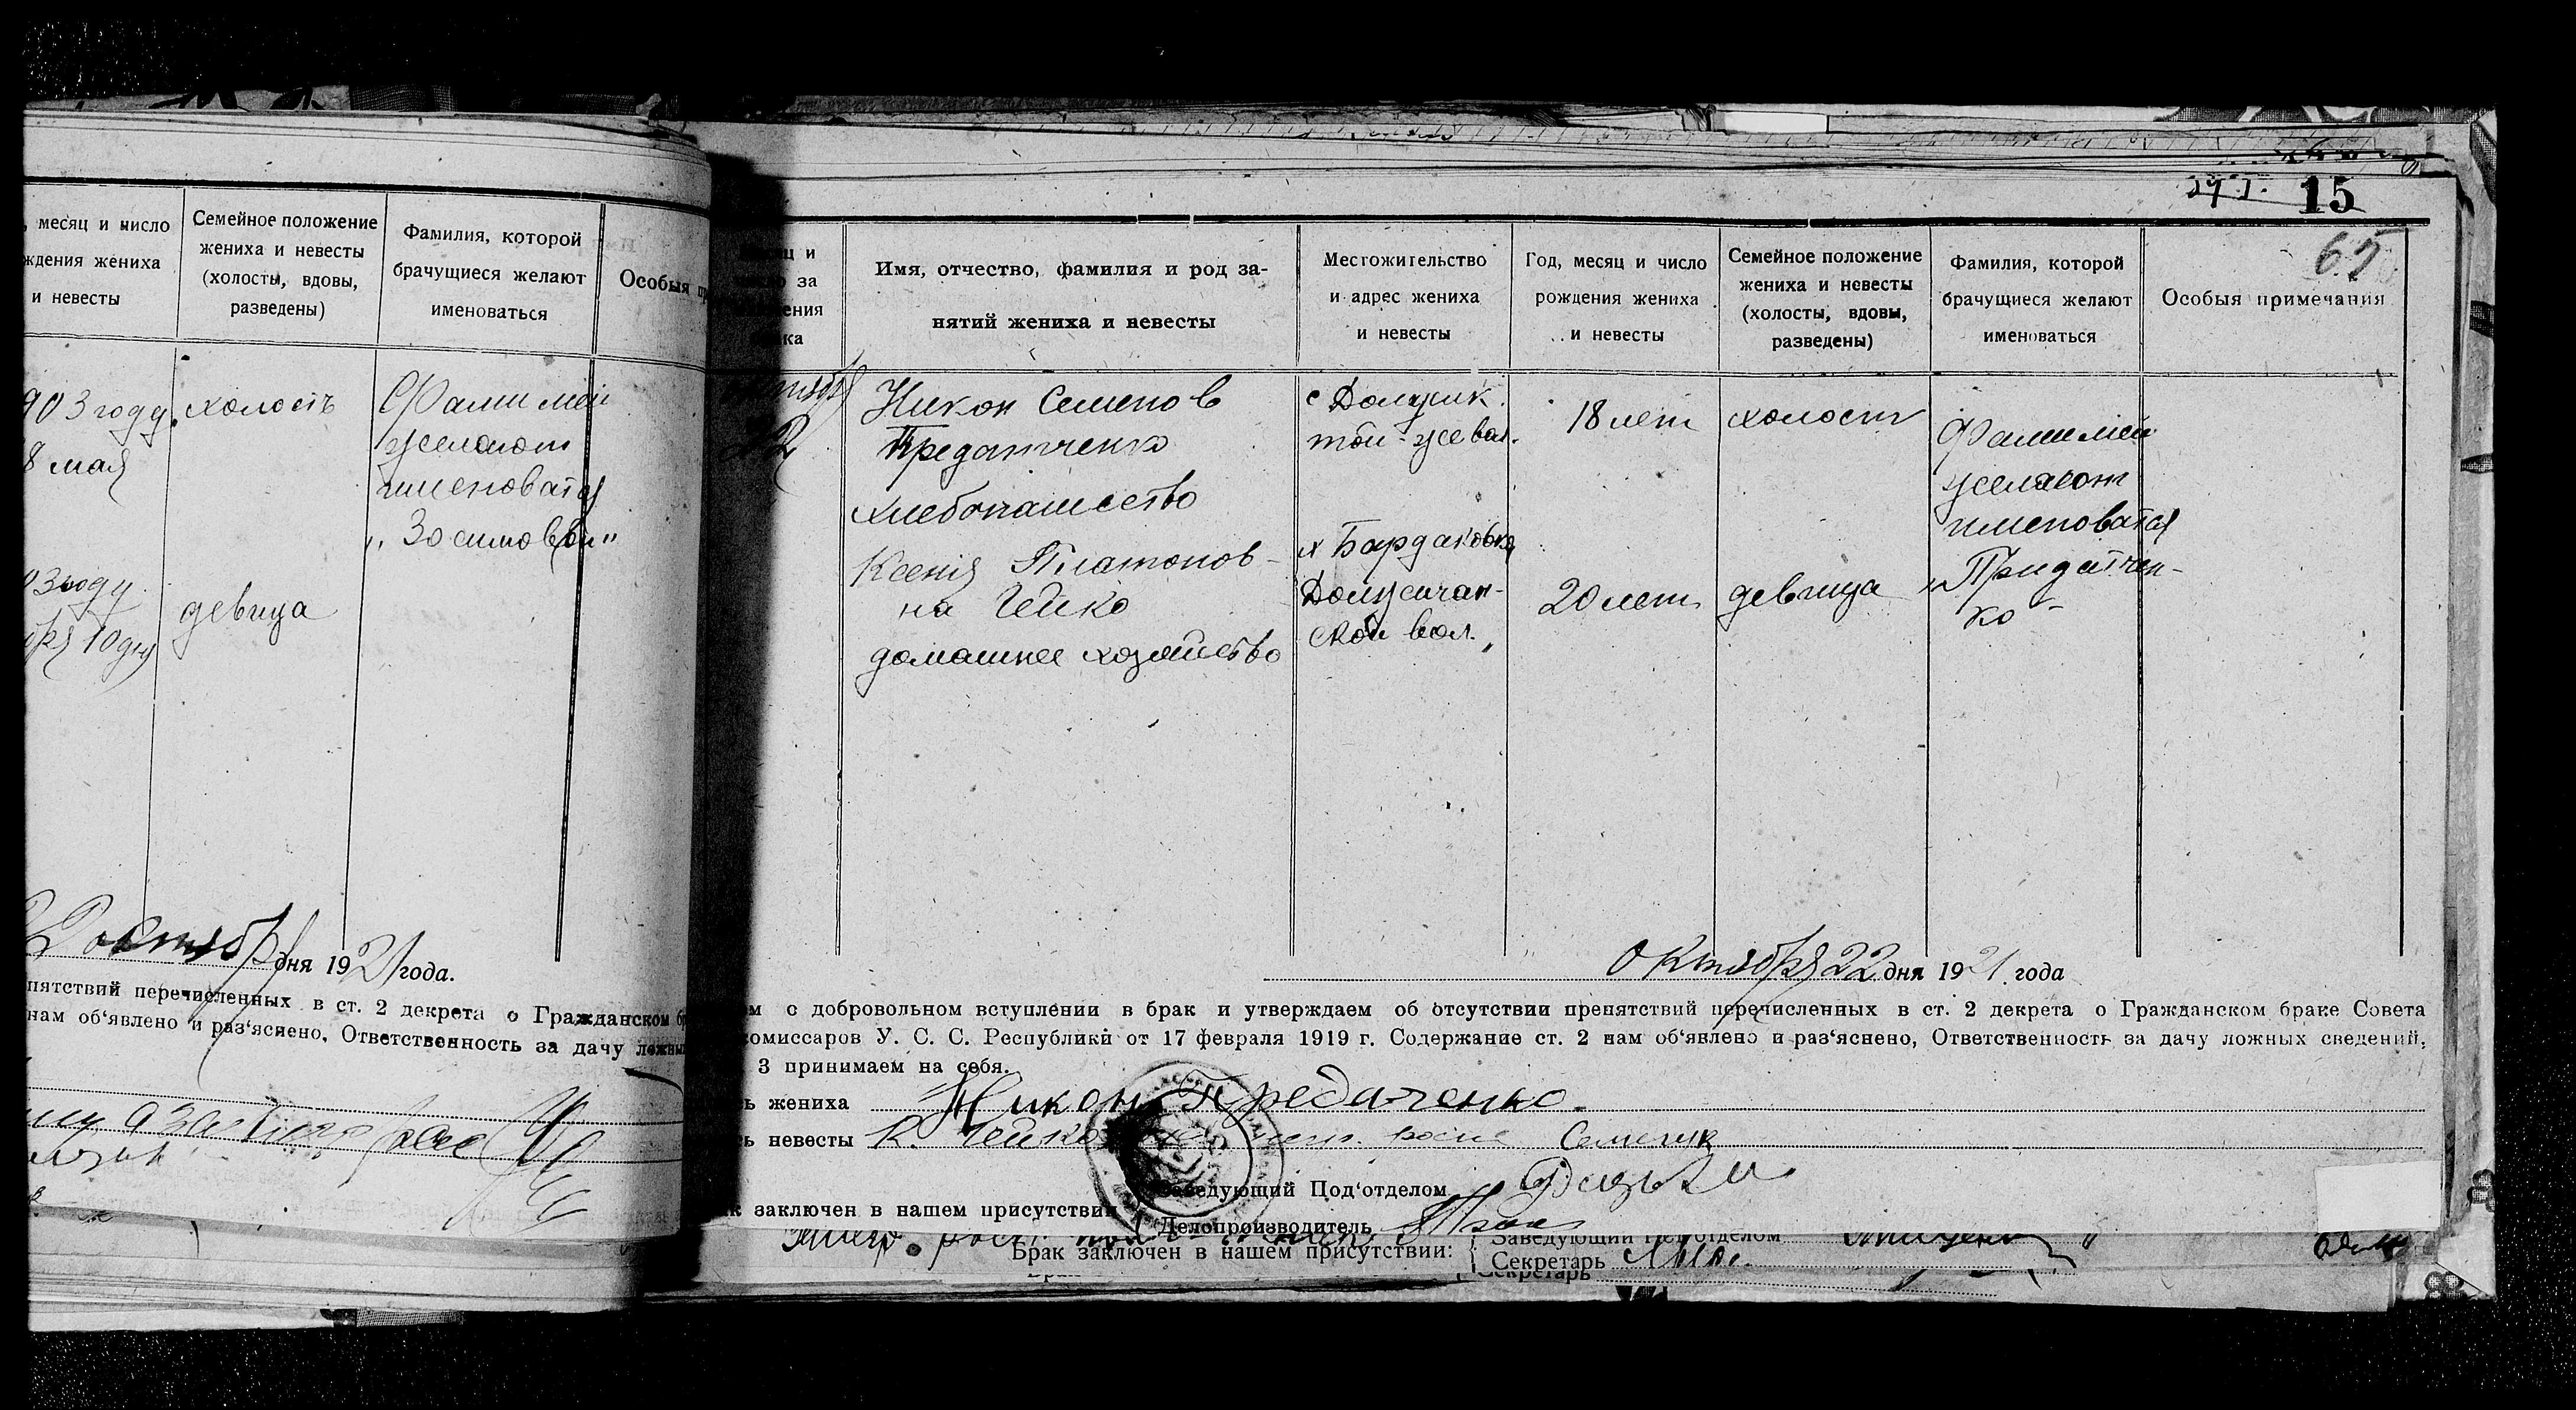 месяц и число
ждения жениха
и невесты
Семейное положение
жениха и невесты
(холосты, вдовы,
разведены)
Фамилия, которой
брачущиеся желают
именоваться
Особыя
903 году
8 мая
холостъ
Фамилией
желают
именоватся
„Зосимович"
03 году
10 дня
девица
октября дня 1921 года.
пятствий перечисленных в ст. 2 декрета о Гражданском
нам об'явлено и раз'яснено, Ответственность за дачу ложных
15
65
Имя, отчество, фамилия и род за-
нятий жениха и невесты
Местожительство
и адрес жениха
и невесты
Год, месяц и число
рождения жениха
и невесты
Семейное положение
жениха и невесты
(холосты, вдовы,
разведены)
Фамилия, которой
брачущиеся желают
именоваться
Особыя примечания
Никон Семенов
Предатченко
хлебопашество
с Должик
той-же вол.
18 лет
холост
Фамилией
желают
именоватся
„Придатчен-
ко"
Ксения Платонов-
на Чейко
домашнее хозяйство
х Бардаковка
Должичан-
ской вол.
20 лет
девица
Октября 22 дня 1921 года
ом о добровольном вступлении в брак и утверждаем об отсутствии препятствий перечисленных в ст. 2 декрета о Гражданском браке Совета
омиссаров У. С. С. Республики от 17 февраля 1919 г. Содержание ст. 2 нам об'явлено и раз'яснено, Ответственность за дачу ложных сведений,
3 принимаем на себя.
ь жениха Никон Предаченко
ь невесты К. Чейко
Заведующий Под'отделом
к заключен в нашем присутствии
Делопроизводитель
Брак заключен в нашем присутствии:
Заведующий Под'отделом
Секретарь
Секретарь